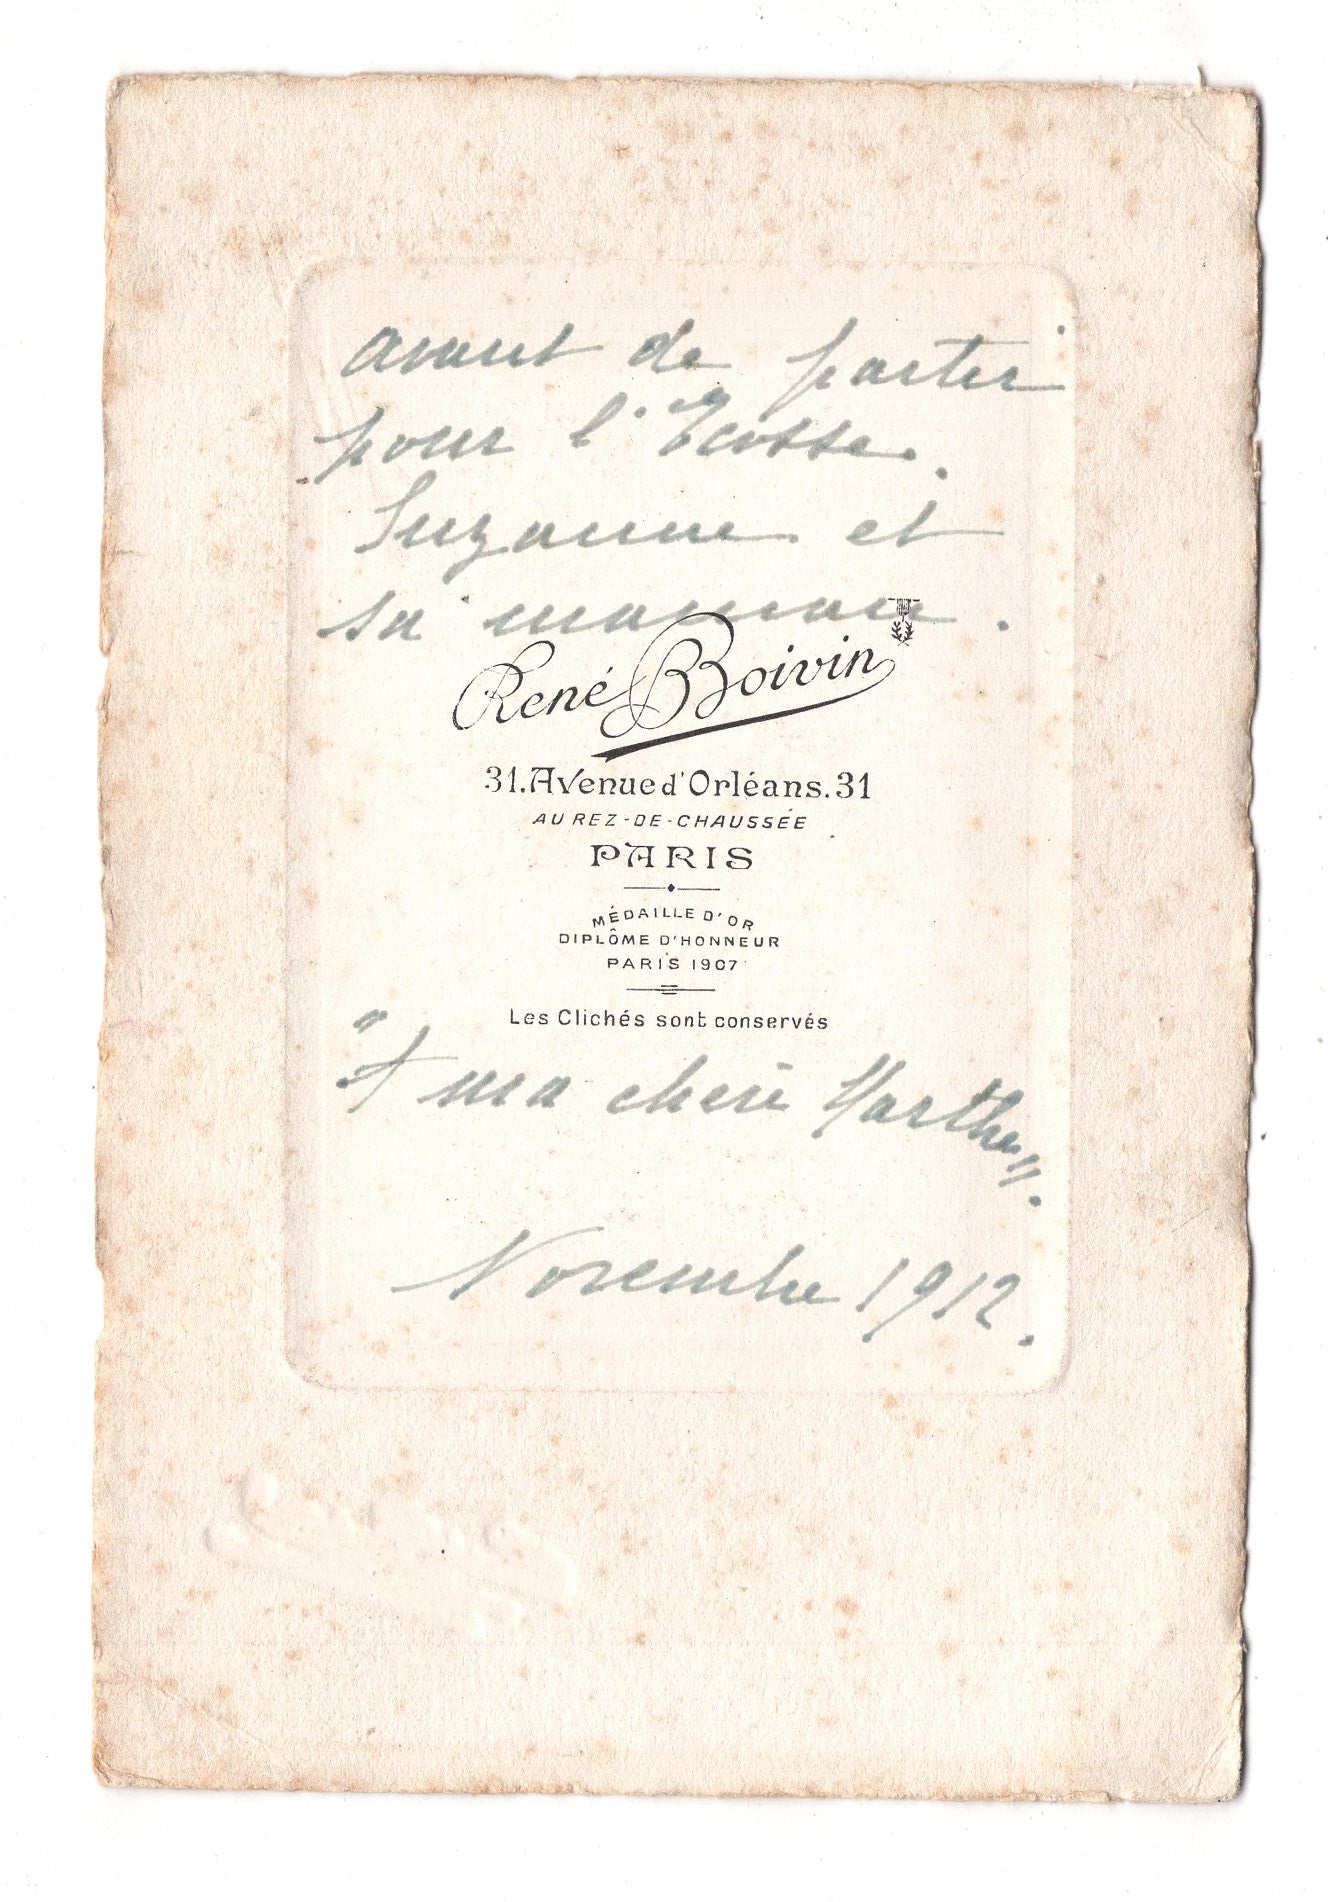 avant de partir
pour l'Ecosse.
Suzanne et
sa maman.
René Boivin
31. Avenue d'Orléans. 31
AU REZ-DE-CHAUSSÉE
PARIS
MÉDAILLE D'OR
DIPLÔME D'HONNEUR
PARIS 1907
Les Clichés sont conservés
"A ma chère Marthe".
Novembre 1912.